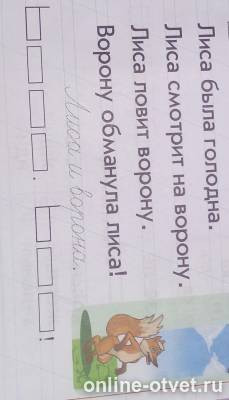 Лиса была голодна.
Лиса смотрит на ворону.
Лиса ловит ворону.
Ворону обманула лиса!
Лиса и ворона.
. !
online-otvet.ru